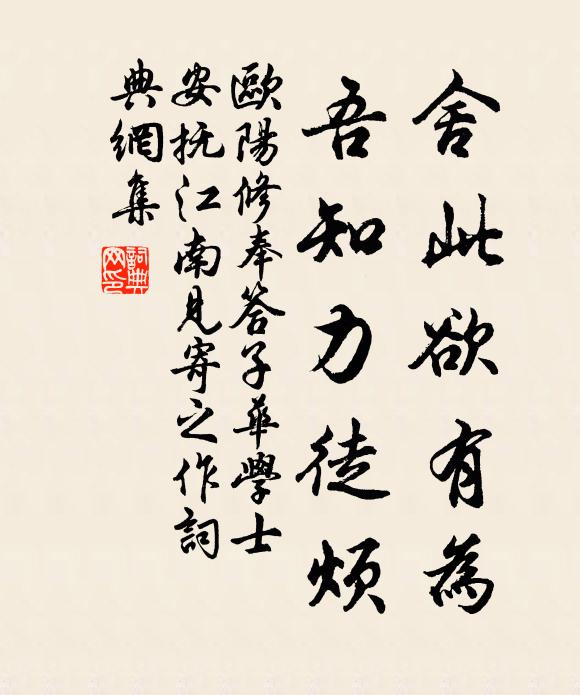 舍此欲有為
吾知力徒煩
歐陽修奉答子華學士
安抚江南見寄之作詞
典網集
詞典網印